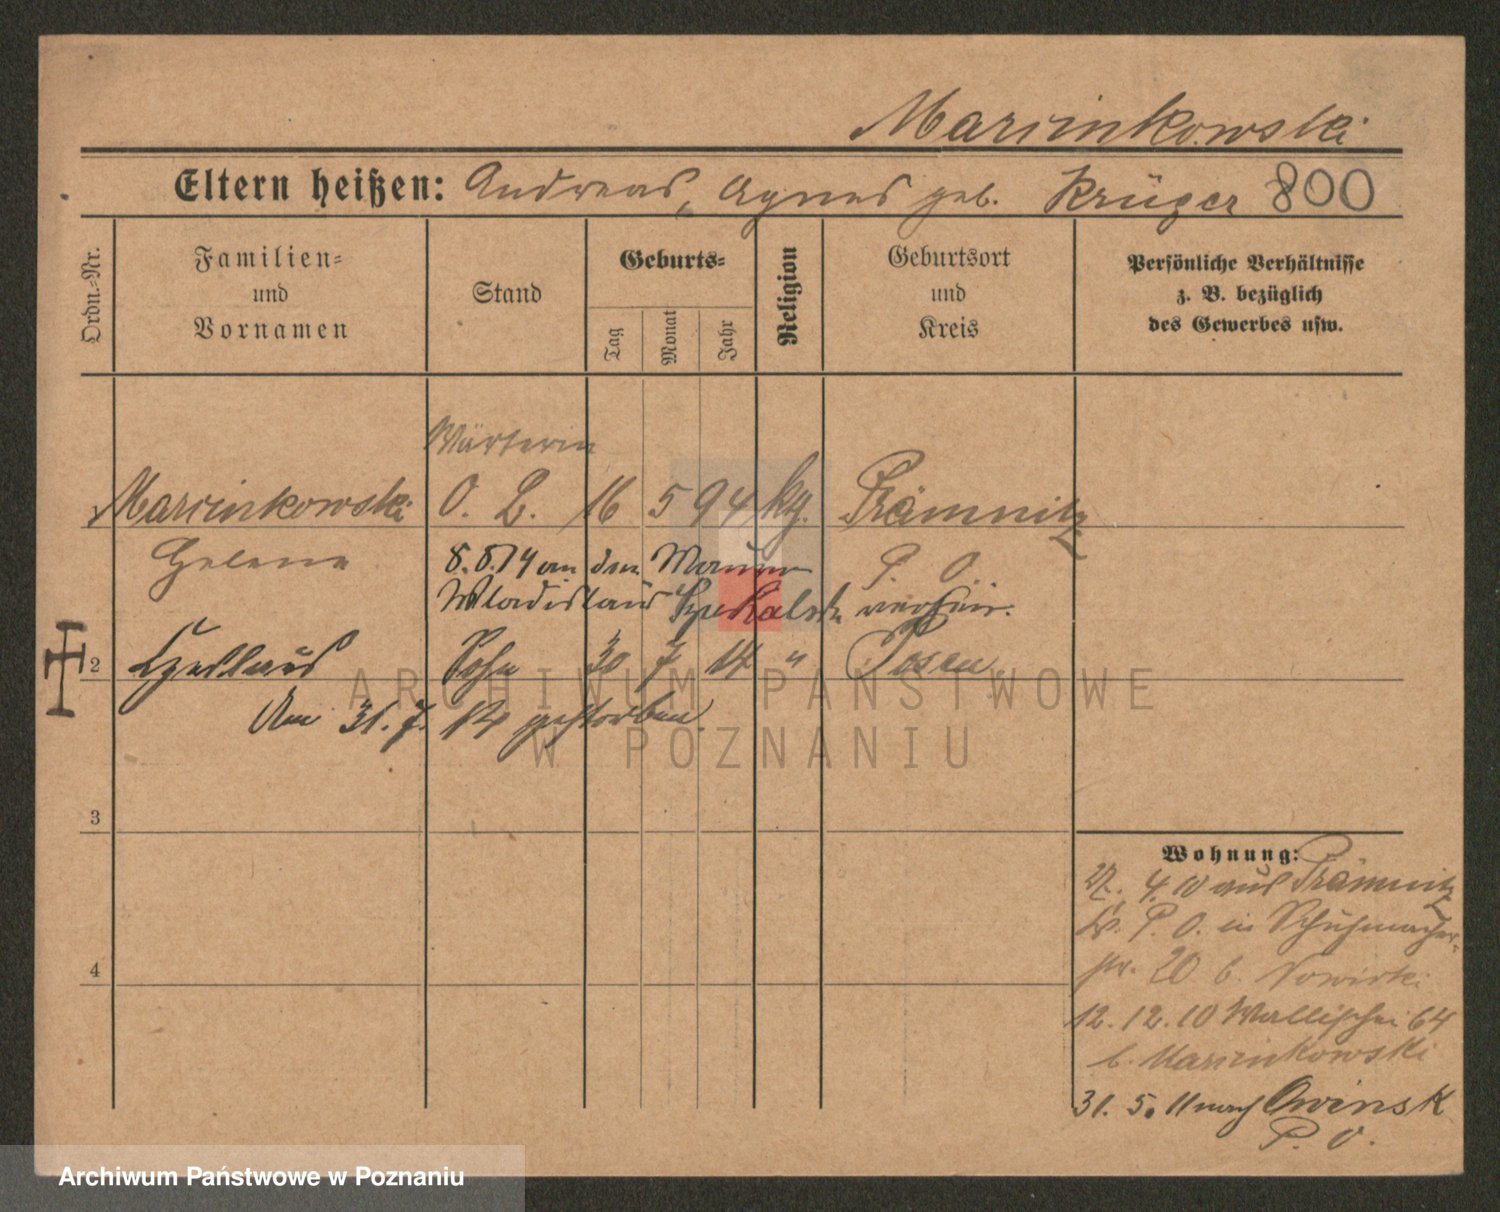 Marcinkowski
Eltern heißen: Andreas, Agnes geb. Krüger 800
Ordn.-Nr.
Familien- und Vornamen
Stand
Geburts-
Tag
Monat
Jahr
Religion
Geburtsort und Kreis
Persönliche Verhältnisse z. B. bezüglich des Gewerbes usw.
Wärterin
1 Marcinkowski O. L. 16 5 94 kg. Prämnitz
Helena P. O.
8.8.14 an den Maurer
Wladislaus verheir.
2 Czeslaus Sohn 30 7 14 " Posen
Am 31. 7. 14 gestorben
3
4
Wohnung:
27. 4. 10 aus Prämnitz
Kr. P. O. in Schuhmacher-
str. 20 b. Nowicki
12. 12. 10 Wallischei 64
b. Marcinkowski
31. 5. 11 nach Owinsk
P. O.
ARCHIWUM PAŃSTWOWE
W POZNANIU
Archiwum Państwowe w Poznaniu